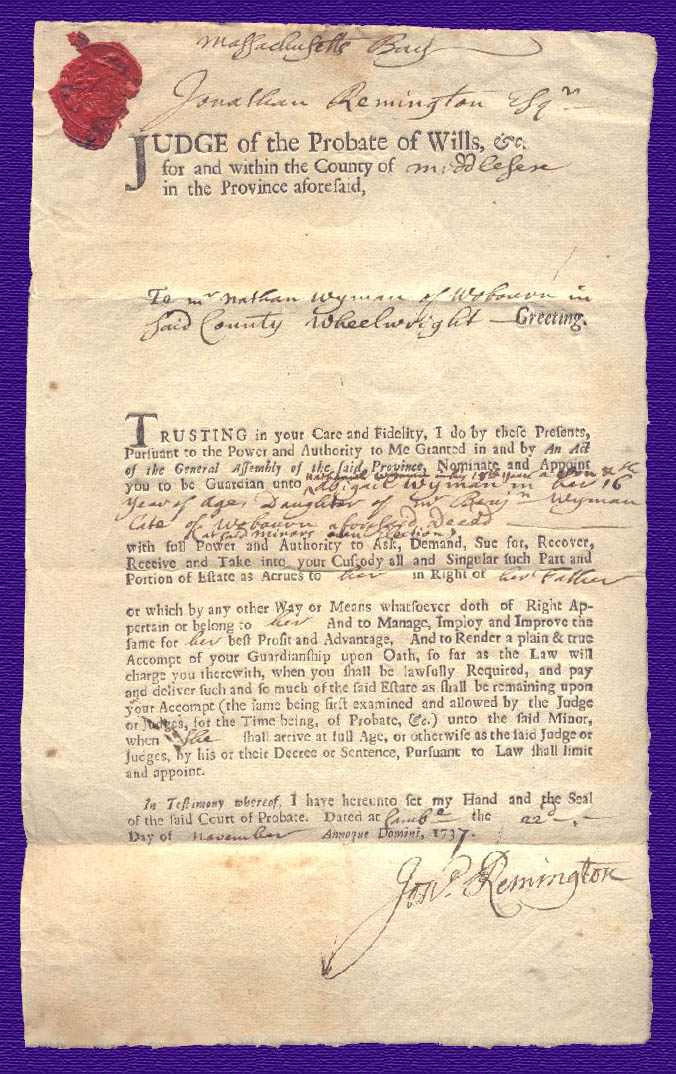 Massachusetts Bay
Jonathan Remington Esqr
JUDGE of the Probate of Wills, &c.
for and within the County of Middlesex
in the Province aforeſaid,
To mr Nathan Wyman of Wobourn in
said County Wheelwright — Greeting.
TRUSTING in your Care and Fidelity, I do by theſe Preſents,
Purſuant to the Power and Authority to Me Granted in and by An Act
of the General Aſſembly of the ſaid Province, Nominate and Appoint
Nathaniel Wyman in his 18th year
you to be Guardian unto Abigail Wyman in her 16th
year of Age, Daughter of mr Benjn Wyman
late of Wobourn aforesaid Decd
(at said minors own Election)
with full Power and Authority to Ask, Demand, Sue for, Recover,
Receive and Take into your Cuſtody all and Singular ſuch Part and
Portion of Eſtate as Accrues to her in Right of her Father
or which by any other Way or Means whatſoever doth of Right Ap-
pertain or belong to her And to Manage, Imploy and Improve the
ſame for her beſt Profit and Advantage, And to Render a plain & true
Accompt of your Guardianſhip upon Oath, ſo far as the Law will
charge you therewith, when you ſhall be lawfully Required, and pay
and deliver ſuch and ſo much of the ſaid Eſtate as ſhall be remaining upon
your Accompt (the ſame being firſt examined and allowed by the Judge
or Judges, for the Time being, of Probate, &c.) unto the ſaid Minor,
when She ſhall arrive at full Age, or otherwiſe as the ſaid Judge or
Judges, by his or their Decree or Sentence, Purſuant to Law ſhall limit
and appoint.
In Teſtimony whereof, I have hereunto ſet my Hand and the Seal
of the ſaid Court of Probate. Dated at Cambe the 22d
Day of November Annoque Domini, 1737.
Jonn. Remington